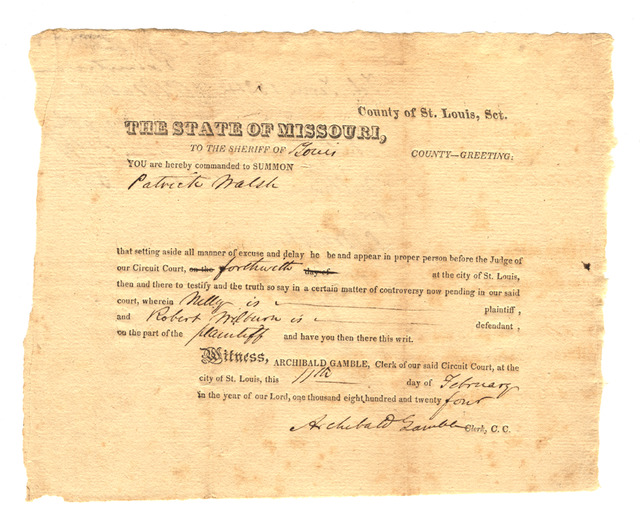 County of St. Louis, Sct.
THE STATE OF MISSOURI,
TO THE SHERIFF OF St Louis COUNTY—GREETING:
YOU are hereby commanded to SUMMON
Patrick Walsh
that setting aside all manner of excuse and delay he be and appear in proper person before the Judge of
our Circuit Court, on the forthwith day of at the city of St. Louis,
then and there to testify and the truth so say in a certain matter of controversy now pending in our said
court, wherein Nelly is plaintiff,
and Robert Wilburn is defendant,
on the part of the plaintiff and have you then there this writ.
Witness, ARCHIBALD GAMBLE, Clerk of our said Circuit Court, at the
city of St. Louis, this 11th day of February
in the year of our Lord, one thousand eight hundred and twenty four
Archibald Gamble Clerk, C. C.